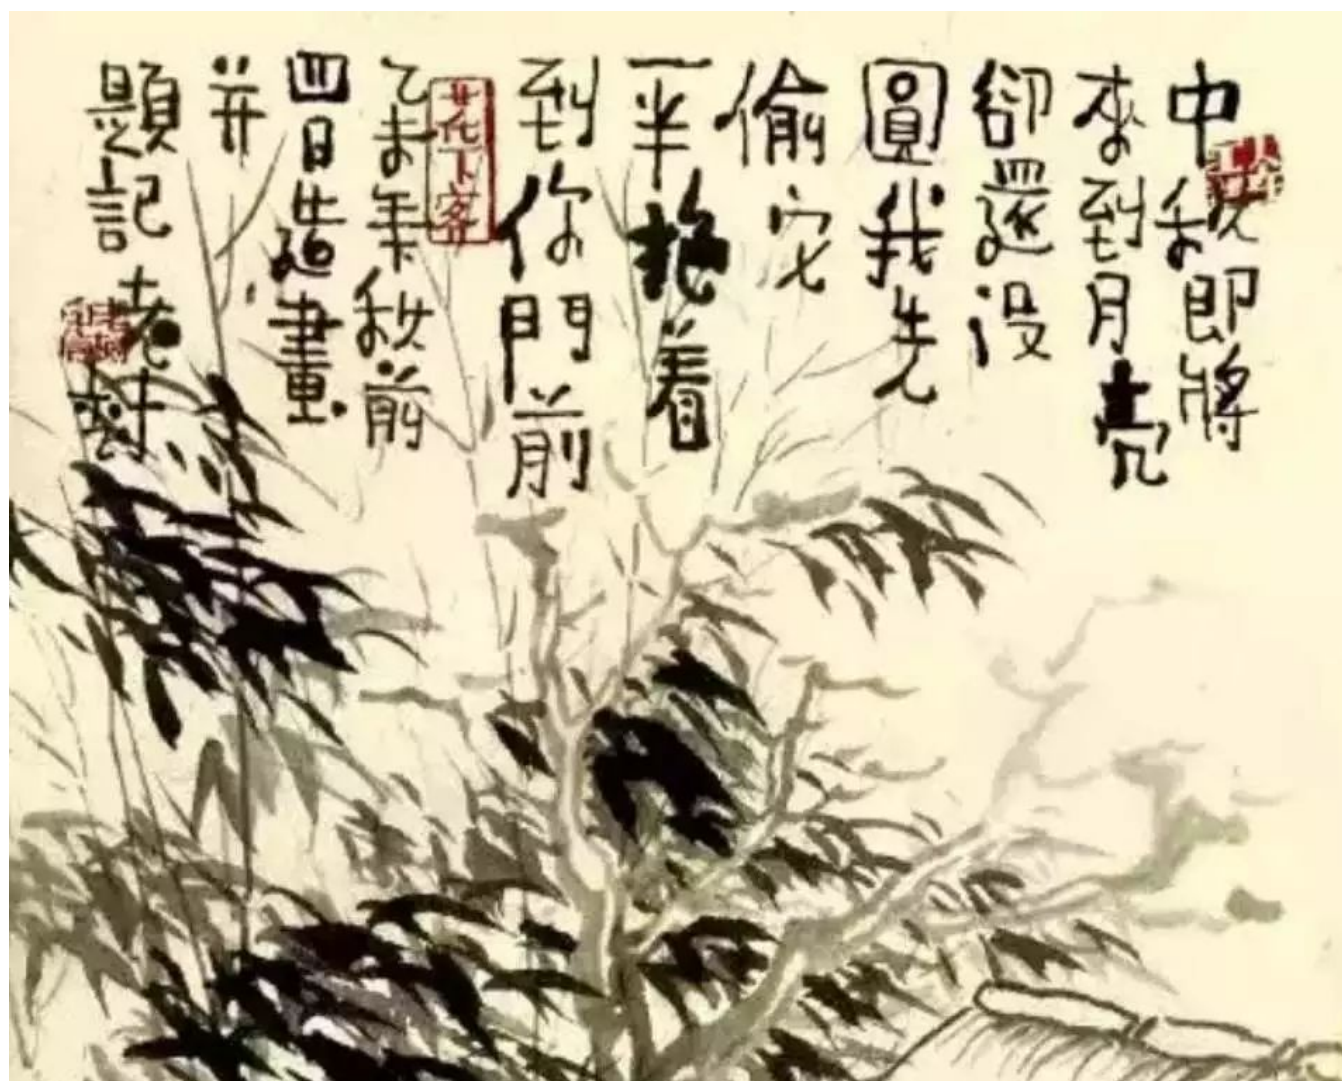 中秋即將
來到月亮
卻還沒
圓我先
偷它
一半抱着
到你門前
花下客
乙未年秋前
四日造畫
并
題記老樹